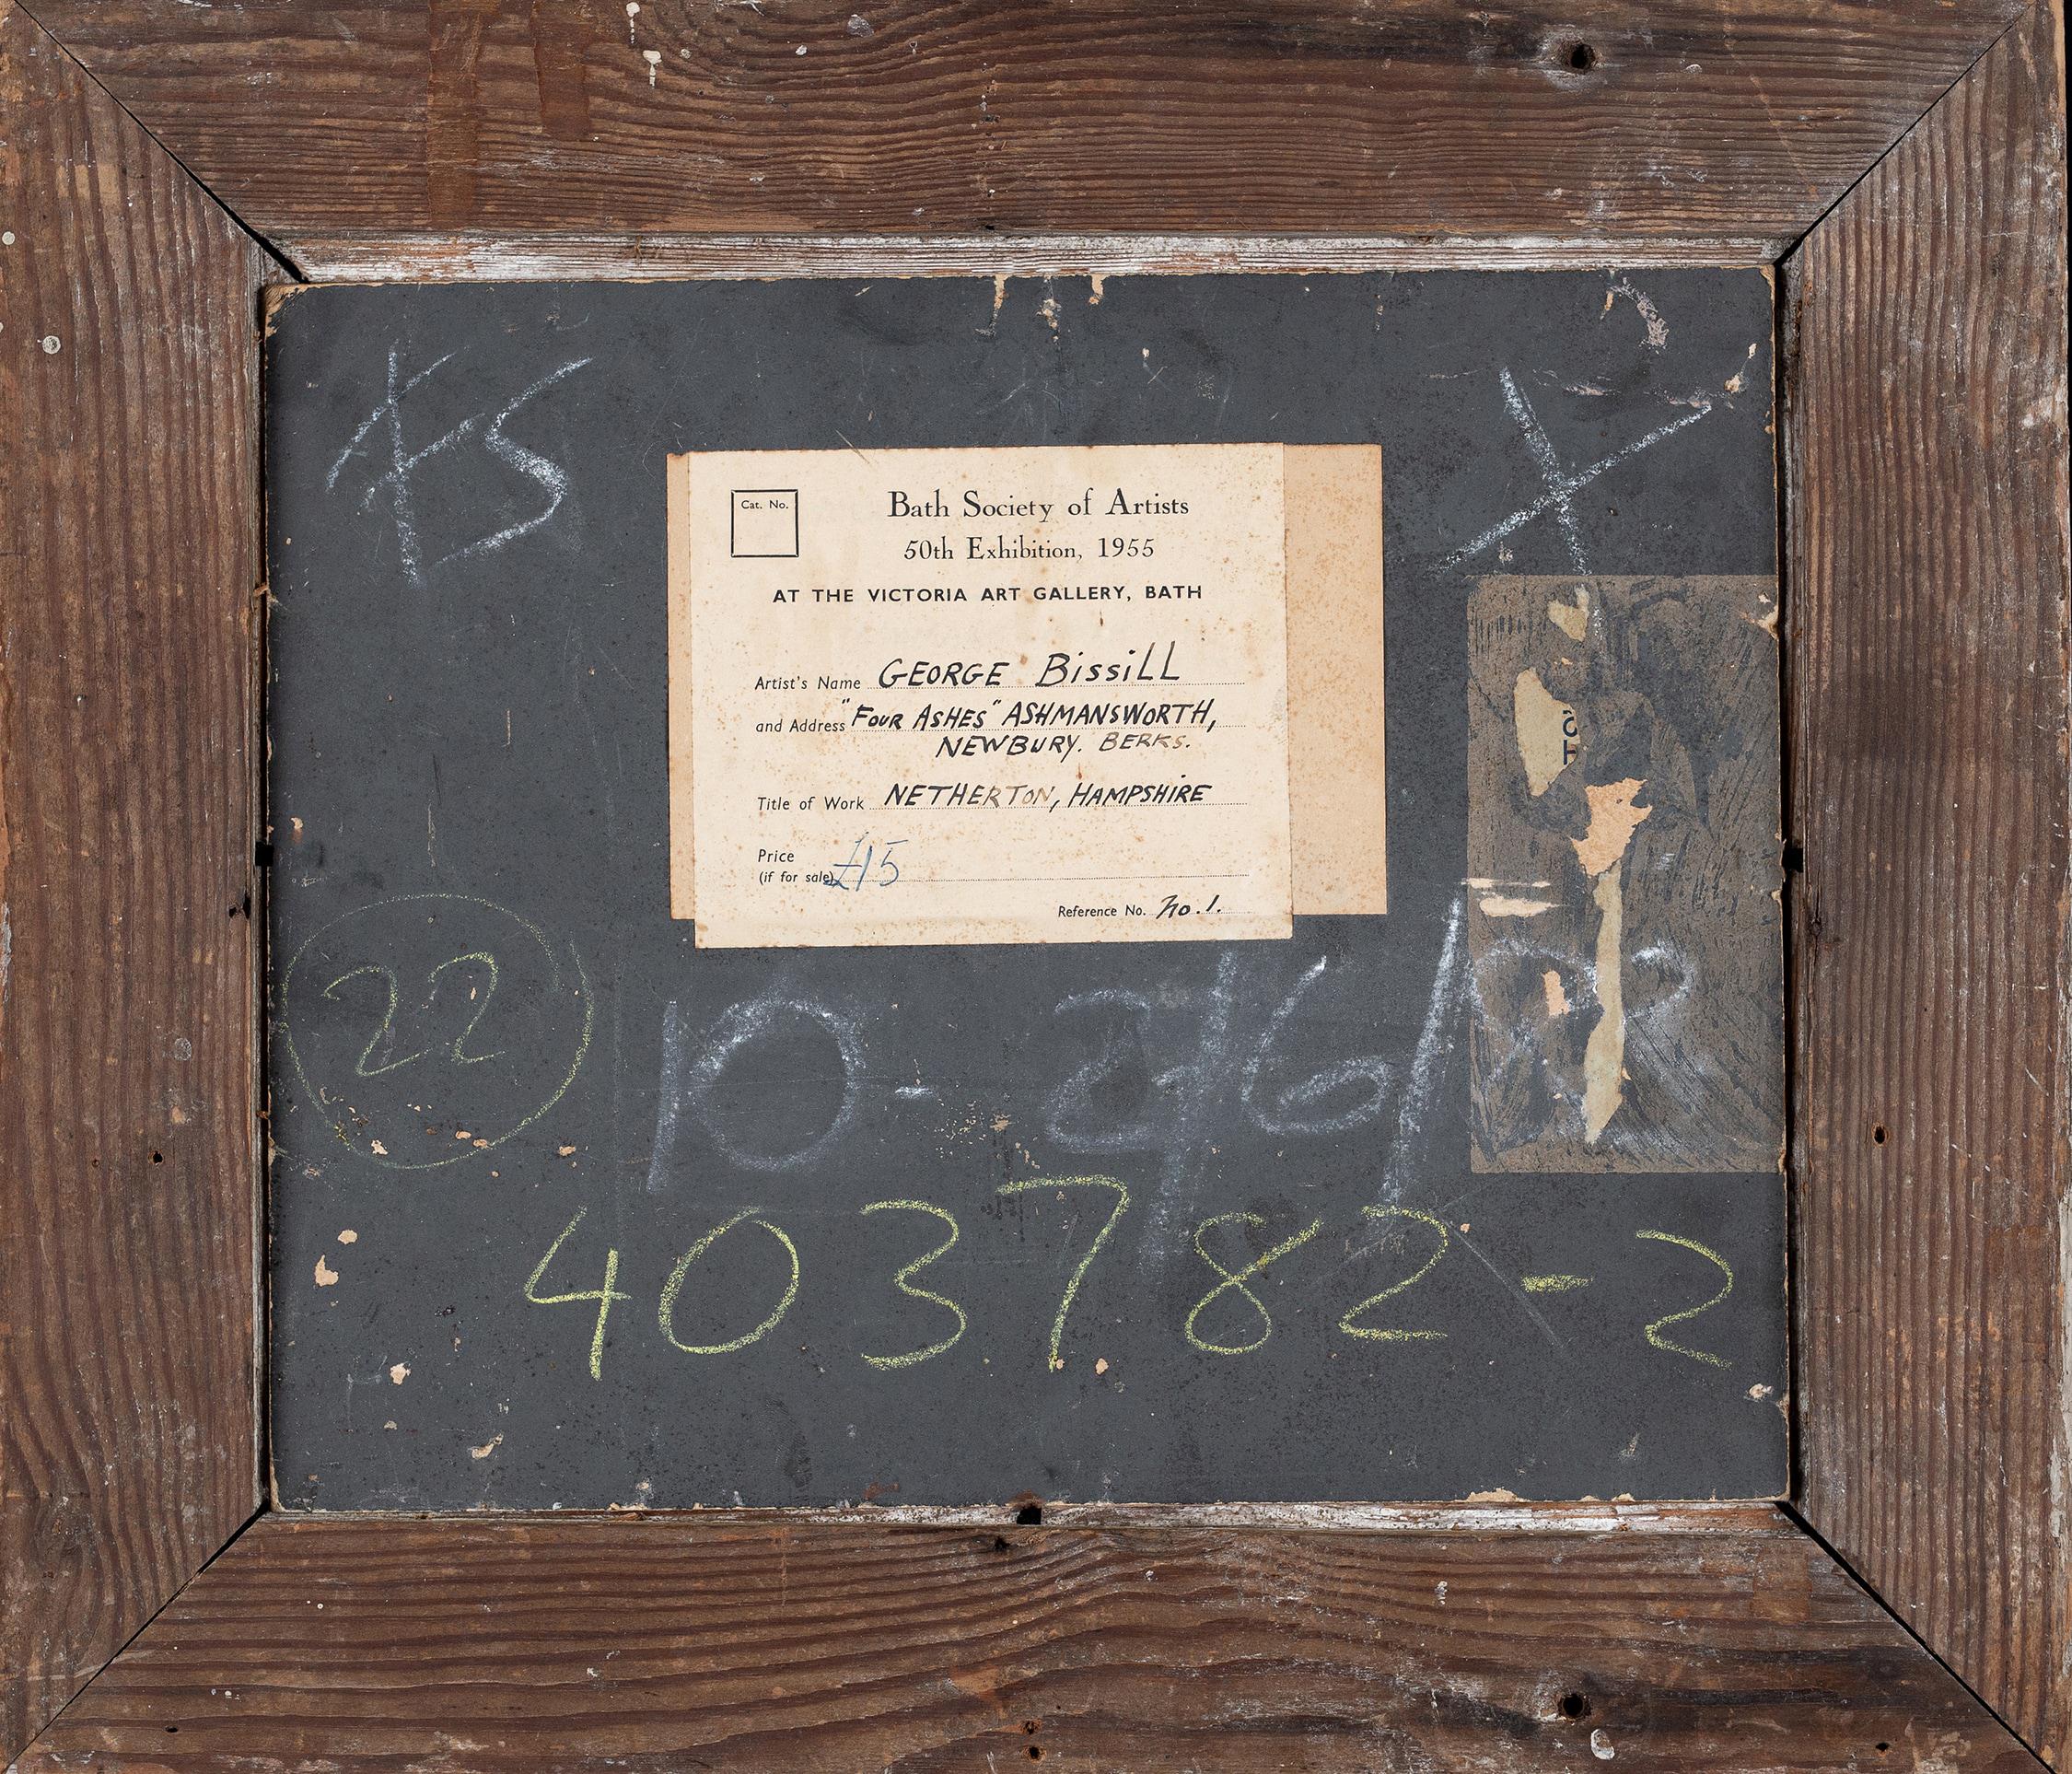 45
Cat. No.
Bath Society of Artists
50th Exhibition, 1955
AT THE VICTORIA ART GALLERY, BATH
Artist's Name GEORGE BissiLL
and Address "FOUR ASHES" ASHMANSWORTH,
NEWBURY. BERKS.
Title of Work NETHERTON, HAMPSHIRE
Price
(if for sale) £15
Reference No. No. 1.
22
403782-2